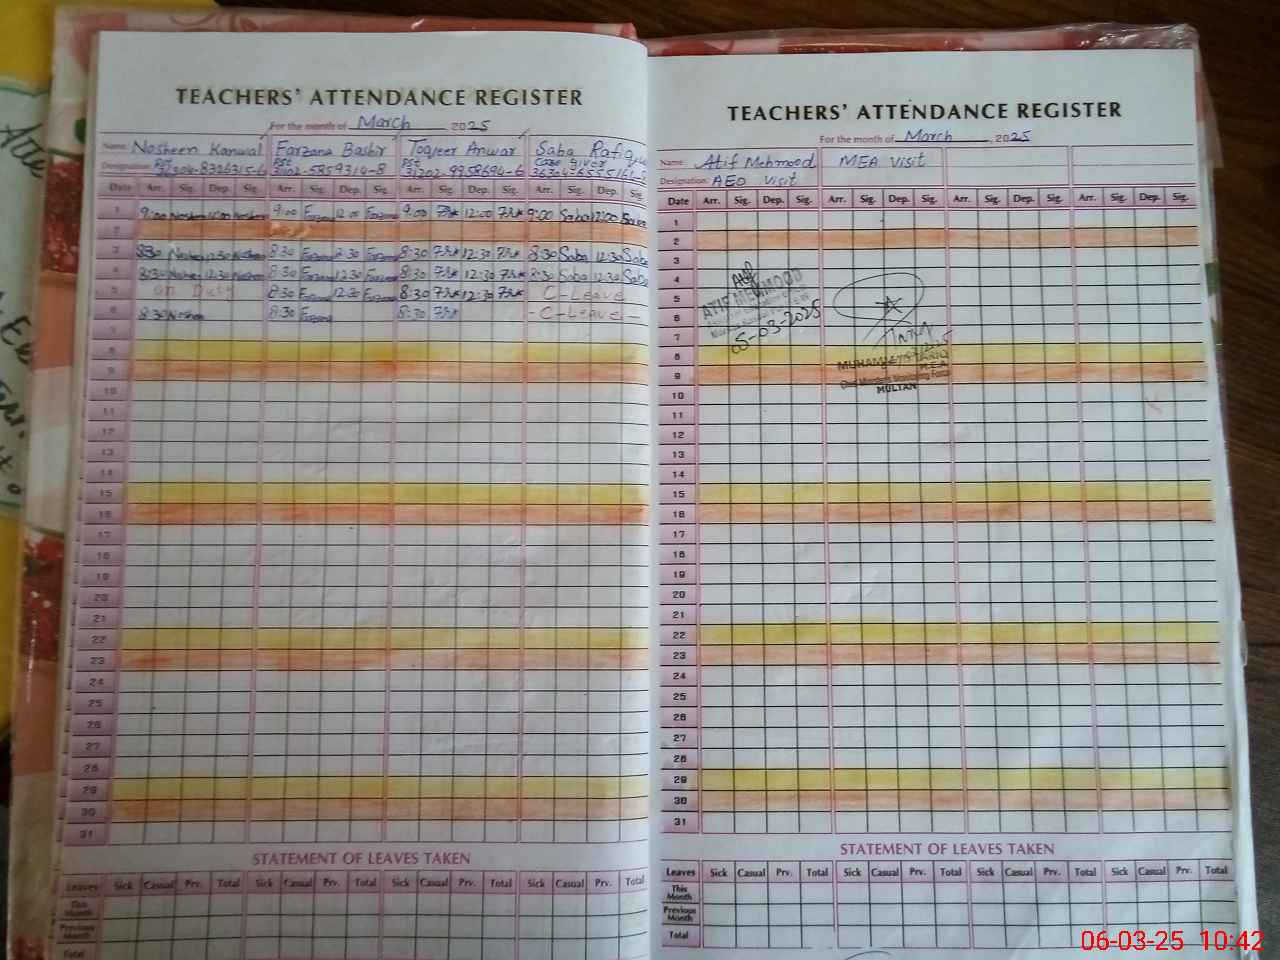 TEACHERS' ATTENDANCE REGISTER
For the month of March 2025
Name Nosheen Kanwal Farzana Bashir Toqeer Anwar Saba Rafique
Designation PST PST PST Care giver
31102-5859314-8 31202-9958694-6
Date Arr. Sig. Dep. Sig. Arr. Sig. Dep. Sig. Arr. Sig. Dep. Sig. Arr. Sig. Dep. Sig.
1 9:00 Nosheen 12:00 Nosheen 9:00 Farzana 12:00 Farzana 9:00 12:00 9:00 Saba 12:00 Saba
2
3 8:30 Nosheen 12:30 Nosheen 8:30 Farzana 12:30 Farzana 8:30 12:30 8:30 Saba 12:30 Saba
4 8:30 Nosheen 12:30 Nosheen 8:30 Farzana 12:30 Farzana 8:30 12:30 8:30 Saba 12:30 Saba
5 on Duty 8:30 Farzana 12:30 Farzana 8:30 12:30 C-Leave
6 8:30 Nosheen 8:30 Farzana 8:30 - C-Leave -
8
9
10
11
12
13
14
15
16
17
18
19
20
21
22
23
24
25
26
27
28
29
30
31
STATEMENT OF LEAVES TAKEN
Leaves Sick Casual Prv. Total Sick Casual Prv. Total Sick Casual Prv. Total Sick Casual Prv. Total
This Month
Previous Month
Total
TEACHERS' ATTENDANCE REGISTER
For the month of March, 2025
Name Atif Mehmood MEA Visit
Designation: AEO Visit
Date Arr. Sig. Dep. Sig. Arr. Sig. Dep. Sig. Arr. Sig. Dep. Sig. Arr. Sig. Dep. Sig.
1
2
3
4
5 ATIF MEHMOOD
6
7 05-03-2025
8 MUHAMMAD TARIQ
9 M.E.A
MULTAN
10
11
12
13
14
15
16
17
18
19
20
21
22
23
24
25
26
27
28
29
30
31
STATEMENT OF LEAVES TAKEN
Leaves Sick Casual Prv. Total Sick Casual Prv. Total Sick Casual Prv. Total Sick Casual Prv. Total
This Month
Previous Month
Total
06-03-25 10:42